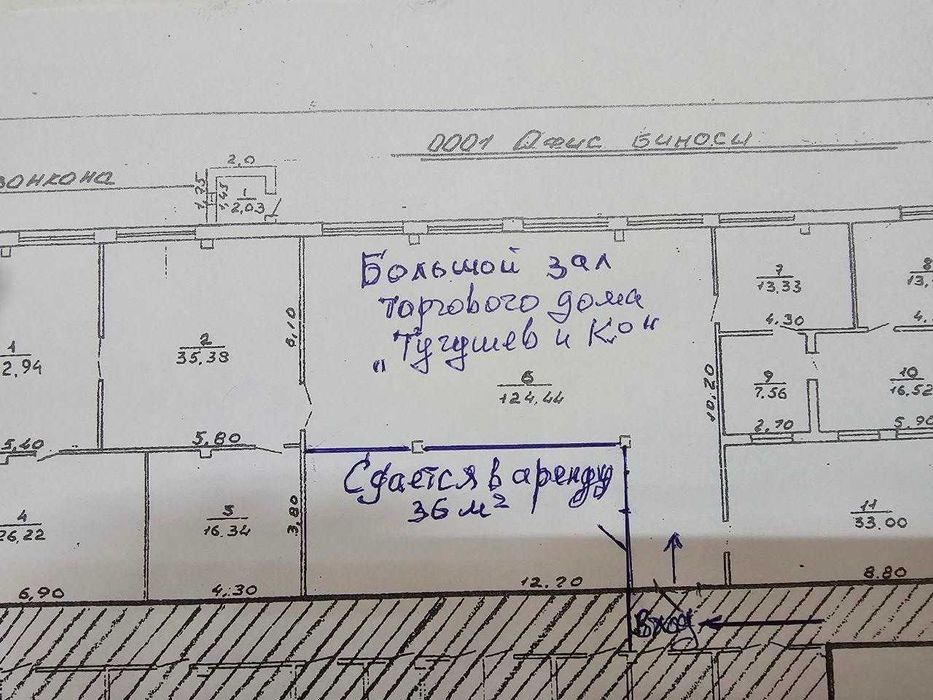 0001 Офис Биноси
2,0
1,75
1,45
1
2,03
Большой зал
торгового дома
„Тугушев и Ко"
6
124,44
6,10
2
35,38
5,80
1
2,94
5,40
7
13,33
4.30
8
9
7.56
2.70
10
16,52
5.90
10,20
Сдается в аренду
36 м²
3,80
16.34
4.30
4
26,22
6,90
12.20
11
33.00
8.80
Вход